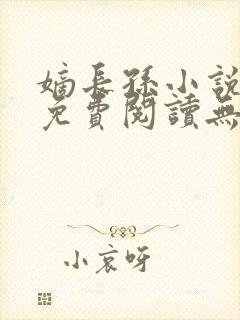 嫡長孫小說
免費閱讀無
小哀呀